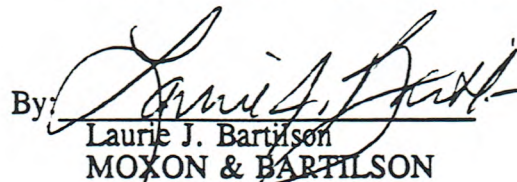 By: Laurie J. Barth
Laurie J. Bartilson
MOXON & BARTILSON